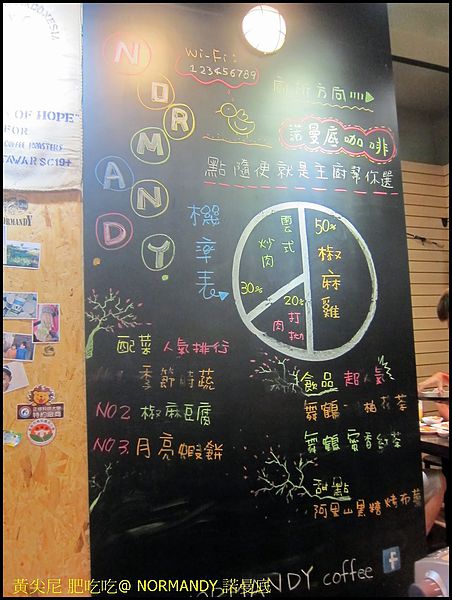 OF HOPE"
FOR
COFFEE ROASTERS
TAIWAR SC19+
NORMANDY
Wi-Fi:
123456789
廁所方向
諾曼底咖啡
點隨便就是主廚幫你選
機率表
雲式炒肉
30%
50%
椒麻雞
20%
打拋肉
配菜 人氣排行
季節時蔬
NO2 椒麻豆腐
NO3.月亮蝦餅
飲品 超人氣
舞鶴-柚花茶
舞鶴 蜜香紅茶
甜點
阿里山黑糖烤布蕾
NORMANDY coffee
f
黃尖尼 肥吃吃@ NORMANDY 諾曼底